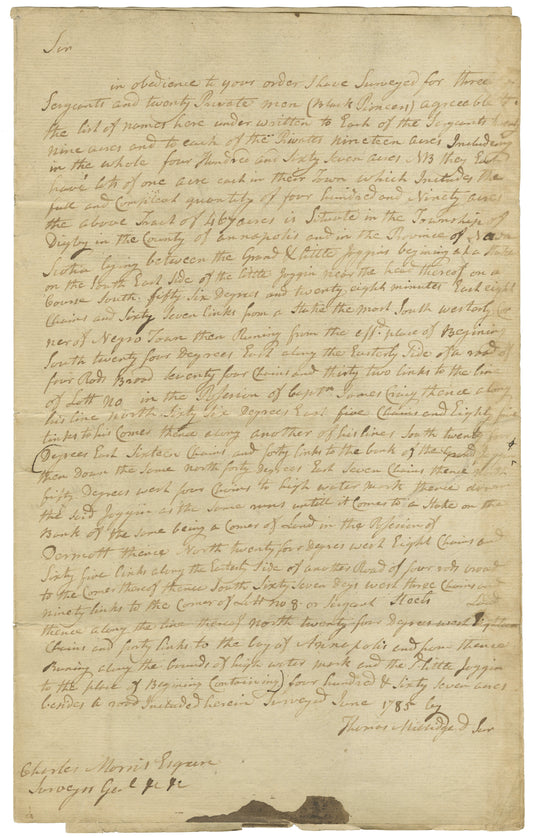 Sir
in obedience to your order I have Surveyed for three
Sergants and twenty Private men (Black Pioneers) agreeable to
the list of names here under written to Each of the Sergants
nine acres and to each of the Privates nineteen acres Including
in the whole four Hundred and Sixty Seven acres NB they Each
have lots of one acre each in their Town which Includes the
full and Compleat quantity of four hundred and Ninety acres
the above Tract of 467 acres is Situate in the Township of
Digby in the County of annapolis and in the Province of Nova
Scotia lying between the Grand & little Joggins begining at a Stake
on the South East Side of the little Joggin near the head thereof on a
Course South fifty Six Degrees and twenty eight minutes East eight
Chains and Sixty Seven links from a Stake the most South westerly Cor
ner of Negro Town then Runing from the affsd. place of Begining
South twenty four Degrees East along the Easterly Side of a road of
four Rods Broad Seventy four Chains and thirty two links to the line
of Lott No in the Possesion of Captn. James Craig thence along
his line North Sixty Six Degrees East five Chains and Eighty five
links to his Corner thence along another of his lines South twenty four
Degrees East Sixteen Chains and forty links to the bank of the Grand Joggin
then down the Same north forty Degrees East Seven Chains thence
fifty Degrees west four Chains to high water mark thence down
the said Joggin as the Same runs untill it Comes to a Stake on the
Bank of the Same being a Corner of Land in the Possesion of
Dermott thence North twenty four Degrees west Eight Chains and
Sixty five links along the Easterly Side of another Road of four rods broad
to the Corner thereof thence South Sixty Seven Degs west three Chains and
ninety links to the Corner of Lott no 8 or Sergant Steels Land
thence along the line thereof North twenty four Degrees west Eighteen
Chains and forty links to the bay of Annapolis and from thence
Runing along the bounds of high water mark and the S little Joggin
to the place of Begining (Containing) four hundred & Sixty Seven acres
besides a road Included herein Surveyed June 1785 by
Thomas Millidge D Sur
Charles Morris Esquire
Surveyr Genl. &c &c